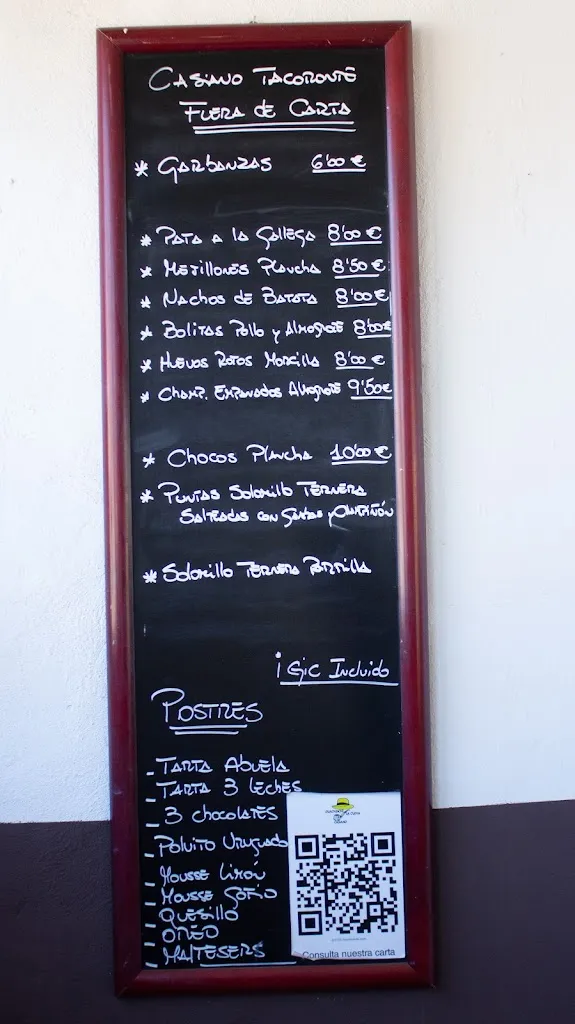 Casiano Tacoronte
Fuera de Carta
* Garbanzas 6'00 €
* Pata a la Gallega 8'00 €
* Mejillones Plancha 8'50 €
* Nachos de Batata 8'00 €
* Bolitas Pollo y Almogrote 8'00 €
* Huevos Rotos Morcilla 8'00 €
* Champ. Empanados Almogrote 9'50 €
* Chocos Plancha 10'00 €
* Puntas Solomillo Ternera
Salteadas con Gambas y Champiñón
* Solomillo Ternera Parrilla
¡ Gic Incluido
Postres
- Tarta Abuela
- Tarta 3 leches
- 3 chocolates
- Polvito Uruguayo
- Mousse Limón
- Mousse Gofio
- Quesillo
- Oreo
- Maltesers
Consulta nuestra carta